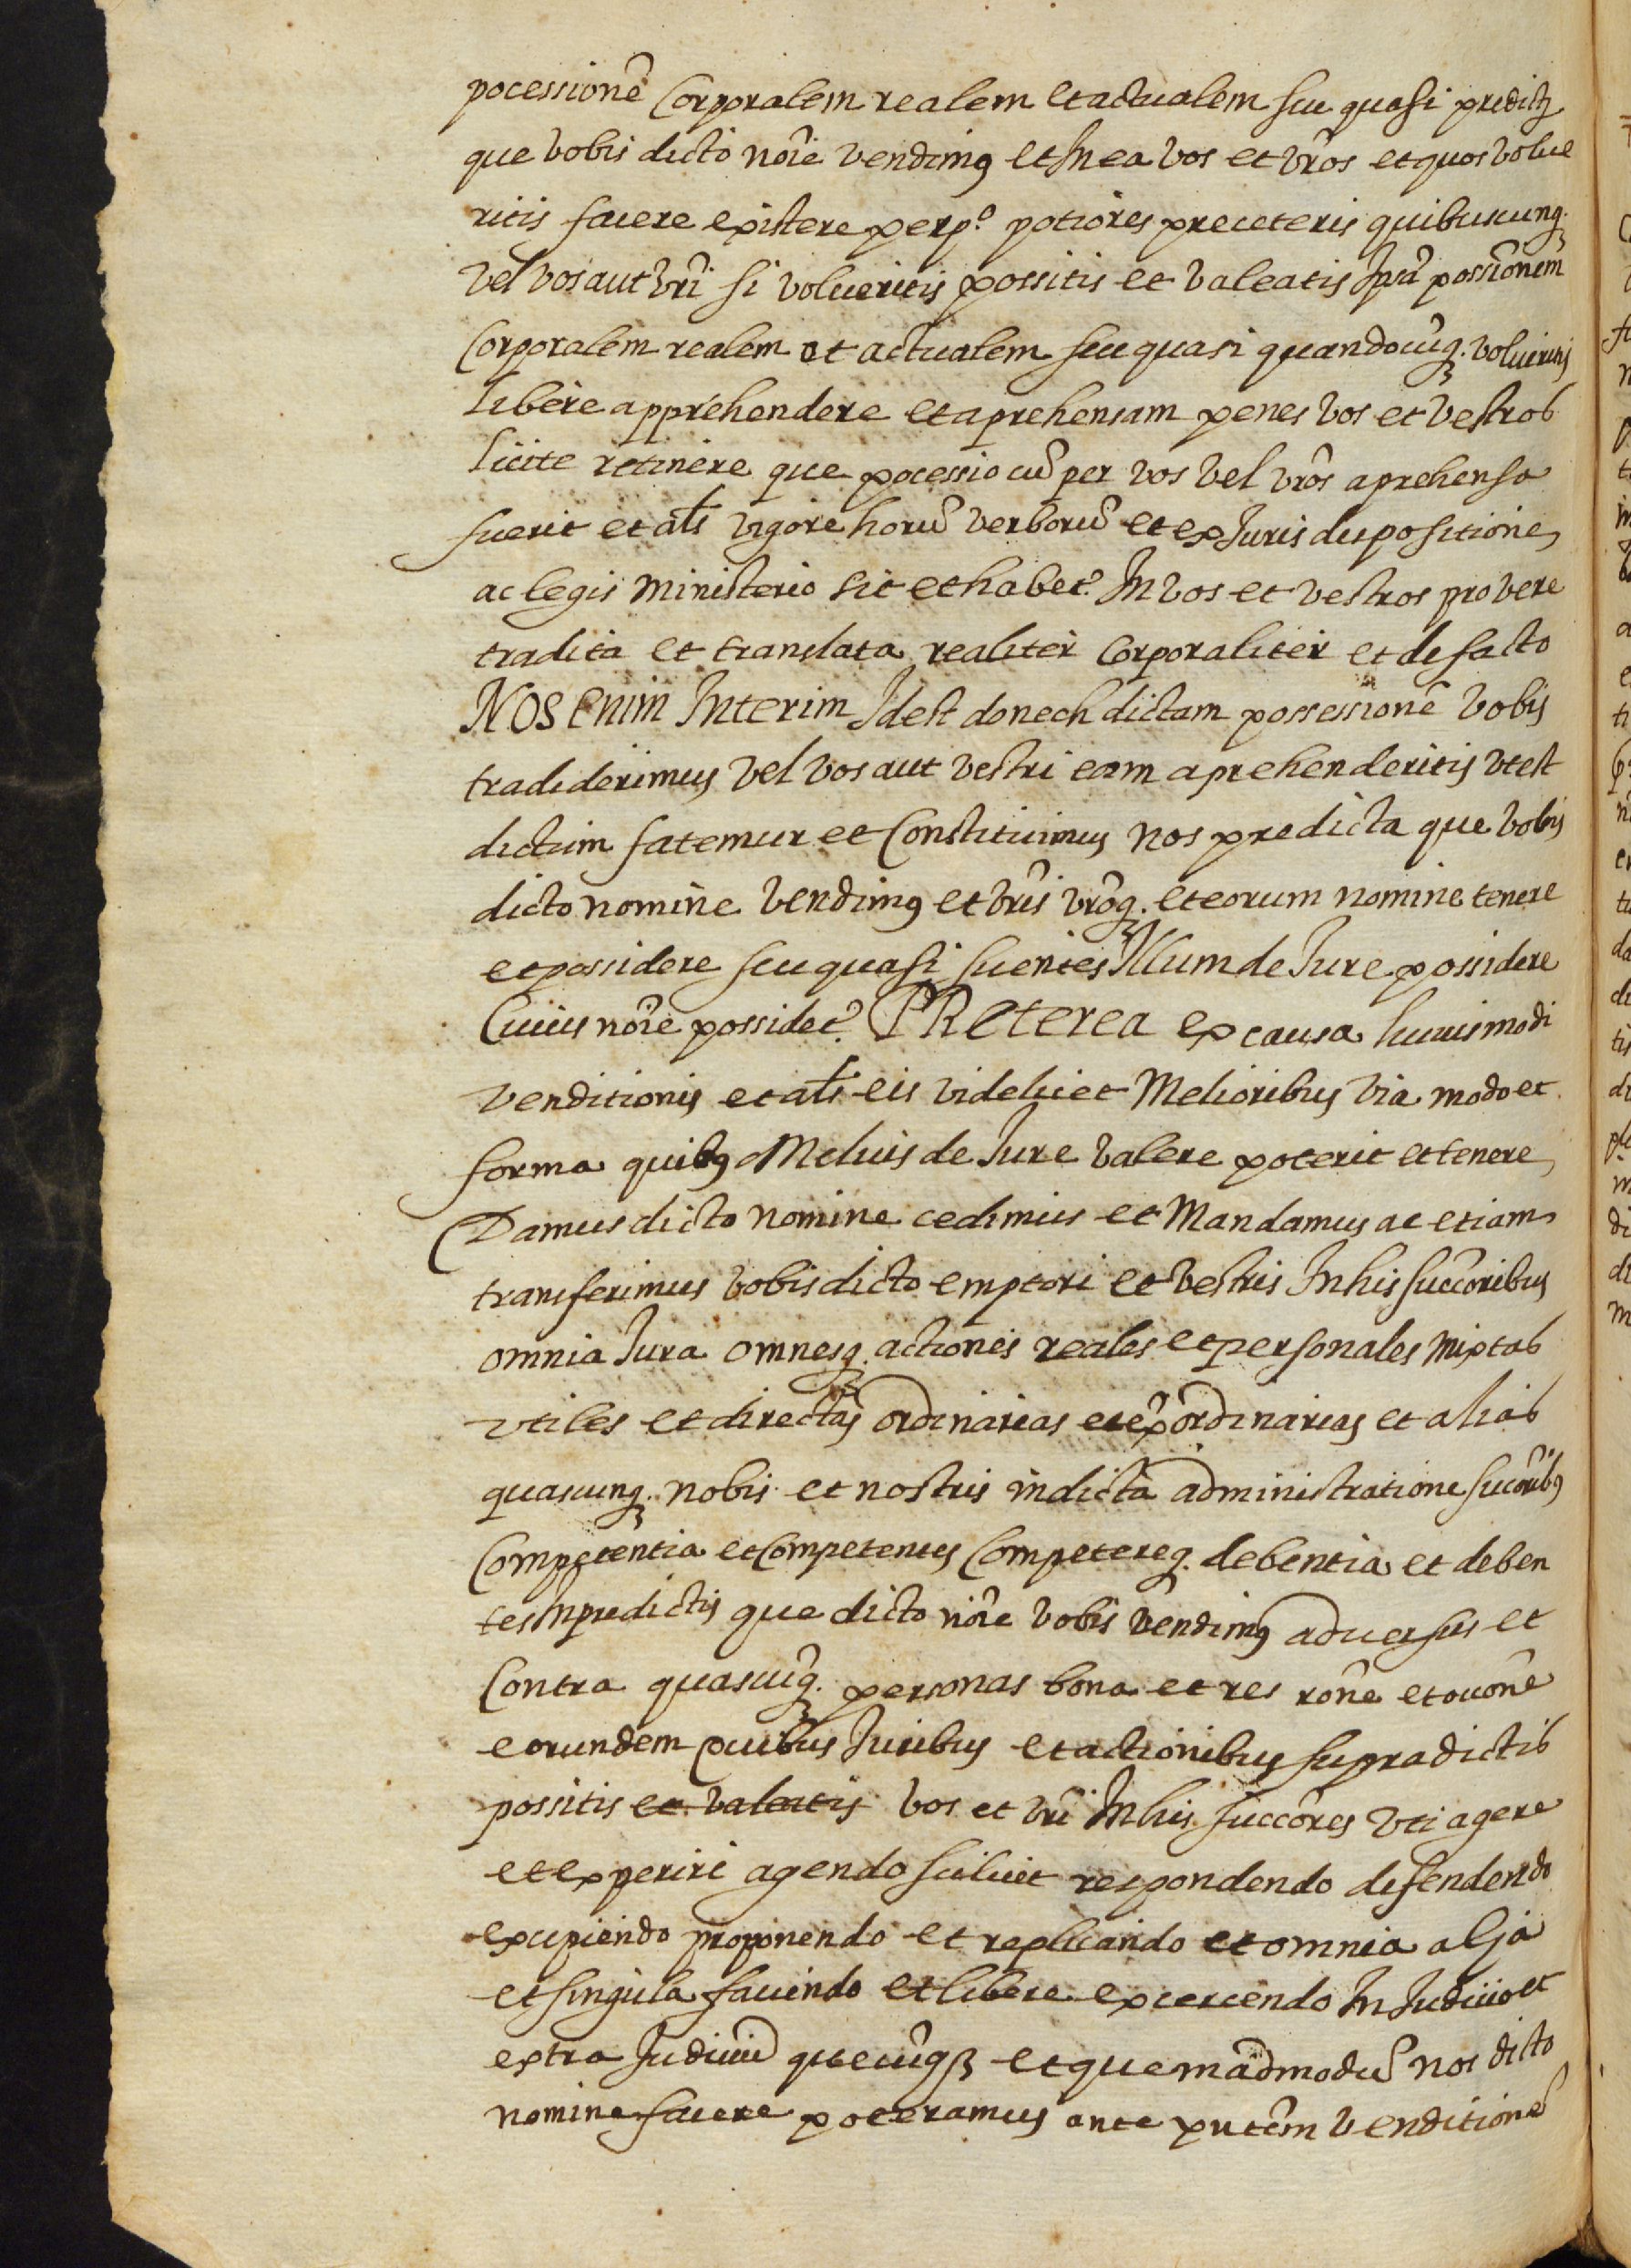 pocessionẽ Corporalem realem et actualem seu quasi predictȝ
que vobis dicto nõie vendimꝰ et In ea vos et vr̃os et quos volue
ritis facere existere perpº. potiores pre ceteris quibuscunqȝ
vel vos aut vr̃i si volueritis possitis et valeatis Ipsã possionem
Corporalem realem et actualem seu quasi quandocũqȝ. volueritis
libere apprehendere et aprehensam penes vos et vestros
licite retinere que pocessio cũ per vos vel vr̃os aprehensa
fuerit et als̃ vigore horũ verborũ et ex Juris dispositione
ac legis ministerio sit et habet̃. In vos et vestros pro vere
tradita et translata realiter Corporaliter et de facto
NOS enim Interim Idest donech dictam possessionẽ vobis
tradiderimus vel vos aut vestri eam aprehenderitis vt est
dictum fatemur et Constituimus nos predicta que vobis
dicto nomine vendimꝰ et vr̃is vr̃oqȝ. et eorum nomine tenere
et possidere seu quasi scientes Illum de Jure possidere
Cuius nõie possidet̃. PReterea ex causa huiusmodi
venditionis et als̃ eis videlicet Melioribus via modo et
forma quibꝰ Melius de Jure valere poterit et tenere
Damus dicto nomine cedimus et Mandamus ac etiam
transferimus vobis dicto emptori et vestris In his succ̃oribus
omnia Jura omnesqȝ. actiones reales et personales mixtas
vtiles et directas ordinarias et ex̃ordinarias et alias
quascunqȝ. nobis et nostris in dicta administratione sucõribꝰ
Competentia et Competentes Competereqȝ. debentia et deben
tes In predictis que dicto nõie vobis vendimꝰ adversus et
Contra quascũqȝ. personas bona et res rõne et occõne
eorundem Quibus Juribus et actionibus supradictis
possitis et valeatis vos et vr̃i In his succõres vti agere
et experiri agendo scilicet respondendo defendendo
excipiendo proponendo et replicando et omnia alja
et singula faciendo et libere excercendo In Judicio et
extra Judiciũ quecũqȝ et quemãdmodũ nos dicto
nomine facere poteramus ante pñtem venditionẽ